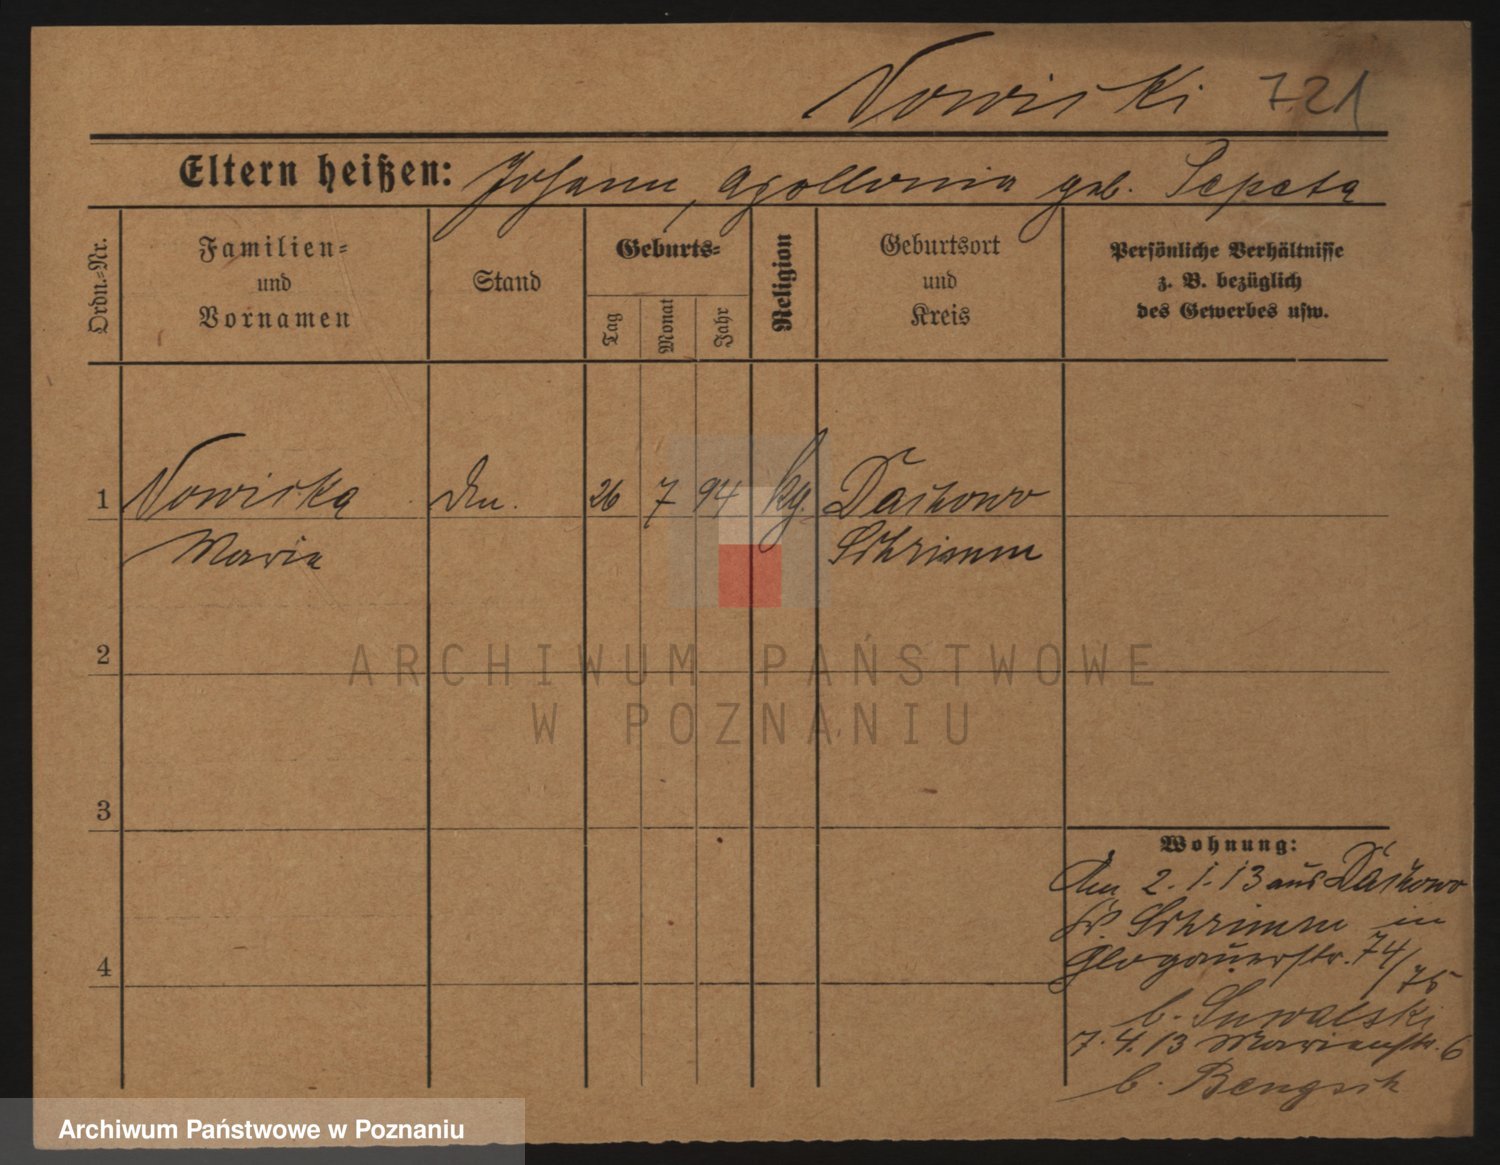 Nowicki 721
Eltern heißen: Johann, Apollonia geb. Sepeta
Ordn.-Nr.
Familien-
und
Vornamen
Stand
Geburts-
Tag
Monat
Jahr
Religion
Geburtsort
und
Kreis
Persönliche Verhältnisse
z. B. bezüglich
des Gewerbes usw.
1 Nowicka 26 7 94 kg. Daikowo
Maria Schrimm
2
3
4
Wohnung:
2.1.13 aus Daikowo
Schrimm in
Glogauerstr. 74/
75
b. Suwalski
7.4.13 Marienstr. 6
b.
ARCHIWUM PAŃSTWOWE
W POZNANIU
Archiwum Państwowe w Poznaniu